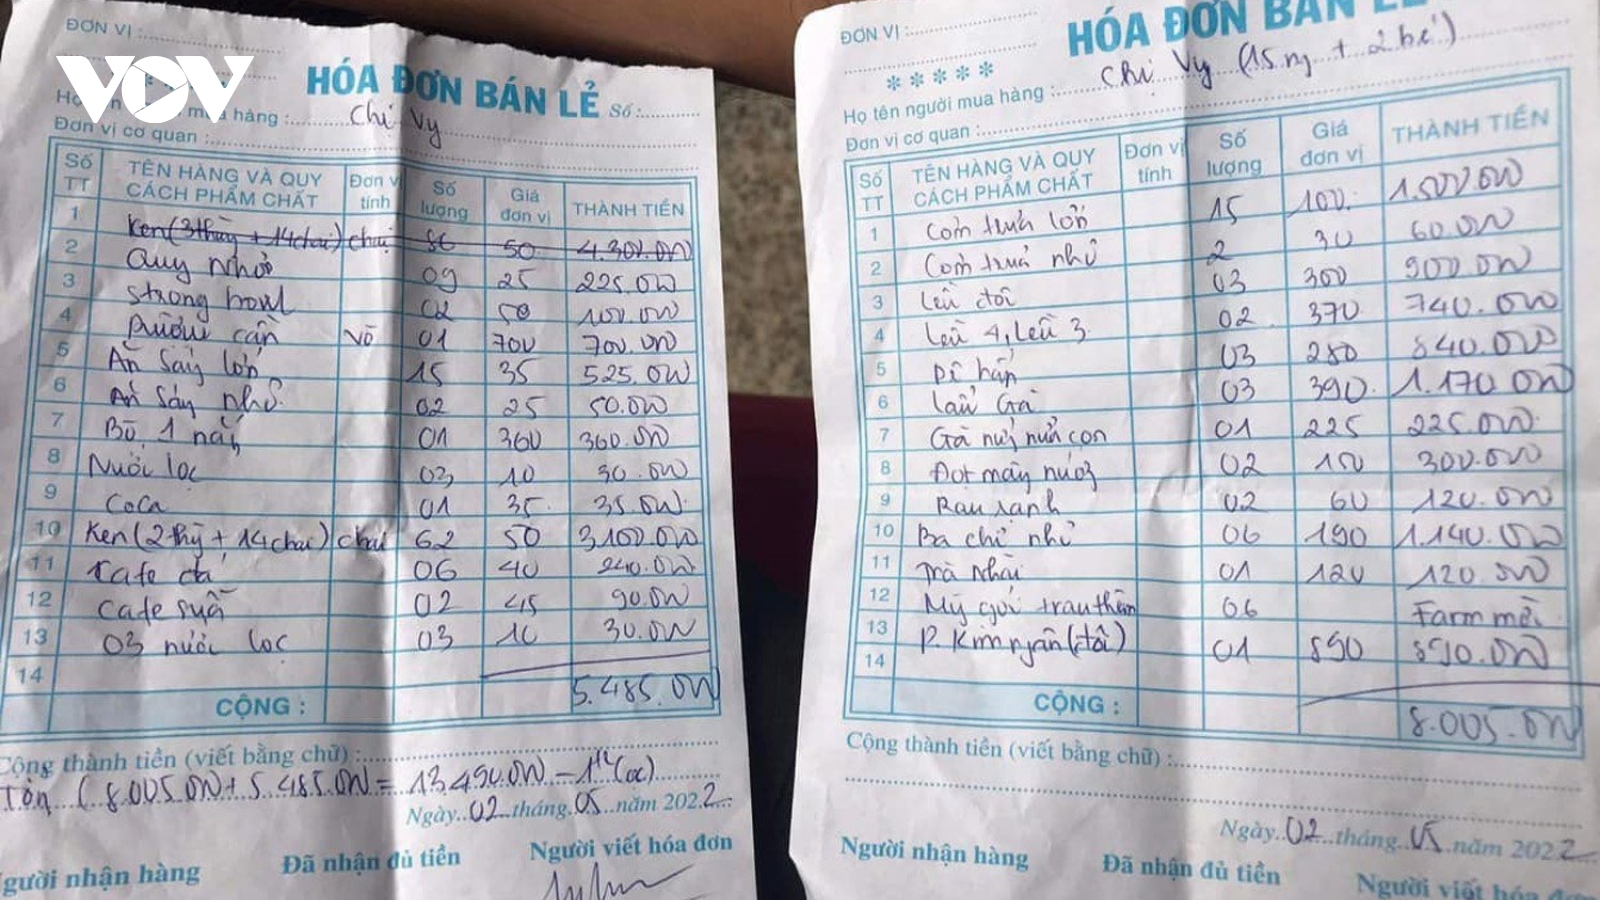 VOV
ĐƠN VỊ :
HÓA ĐƠN BÁN LẺ
Số :
mua hàng : Chi Vy
Đơn vị cơ quan :
Số TT TÊN HÀNG VÀ QUY CÁCH PHẨM CHẤT Đơn vị tính Số lượng Giá đơn vị THÀNH TIỀN
1 Ken (3 thùng + 14 chai) chai 86 50 4.300.000
2 Quy Nhỏ 09 25 225.000
3 Strong bowl 02 50 100.000
4 Rượu cần Vò 01 700 700.000
5 Ăn sáng lớn 15 35 525.000
6 Ăn sáng nhỏ 02 25 50.000
7 Bò 1 nắng 01 360 360.000
8 Nước lọc 03 10 30.000
9 Coca 01 35 35.000
10 Ken (2 thg + 14 chai) chai 62 50 3.100.000
11 Cafe đá 06 40 240.000
12 Cafe sữa 02 45 90.000
13 03 nước lọc 03 10 30.000
14
CỘNG : 5.485.000
Cộng thành tiền (viết bằng chữ) :
(8.005.000 + 5.485.000 = 13.490.000 - 1tr (oc)
Ngày 02 tháng 05 năm 2022
Người nhận hàng Đã nhận đủ tiền Người viết hóa đơn
ĐƠN VỊ :
HÓA ĐƠN BÁN LẺ
*****
Họ tên người mua hàng : Chi Vy (15 ng + 2 bé)
Đơn vị cơ quan :
Số TT TÊN HÀNG VÀ QUY CÁCH PHẨM CHẤT Đơn vị tính Số lượng Giá đơn vị THÀNH TIỀN
1 Cơm trưa lớn 15 100 1.500.000
2 Cơm trưa nhỏ 2 30 60.000
3 Lều đôi 03 300 900.000
4 Lều 4, Lều 3 02 370 740.000
5 Dê hấp 03 280 840.000
6 Lẩu Gà 03 390 1.170.000
7 Gà nướng nửa con 01 225 225.000
8 Đọt mây nướng 02 150 300.000
9 Rau xanh 02 60 120.000
10 Ba chỉ nhỏ 06 190 1.140.000
11 Trà Nhài 01 120 120.000
12 Mỳ gói trau thêm 06 Farm mời
13 P. Kim ngân (đôi) 01 890 890.000
14
CỘNG : 8.005.000
Cộng thành tiền (viết bằng chữ) :
Ngày 02 tháng 05 năm 2022
Người nhận hàng Đã nhận đủ tiền Người viết hóa đơn